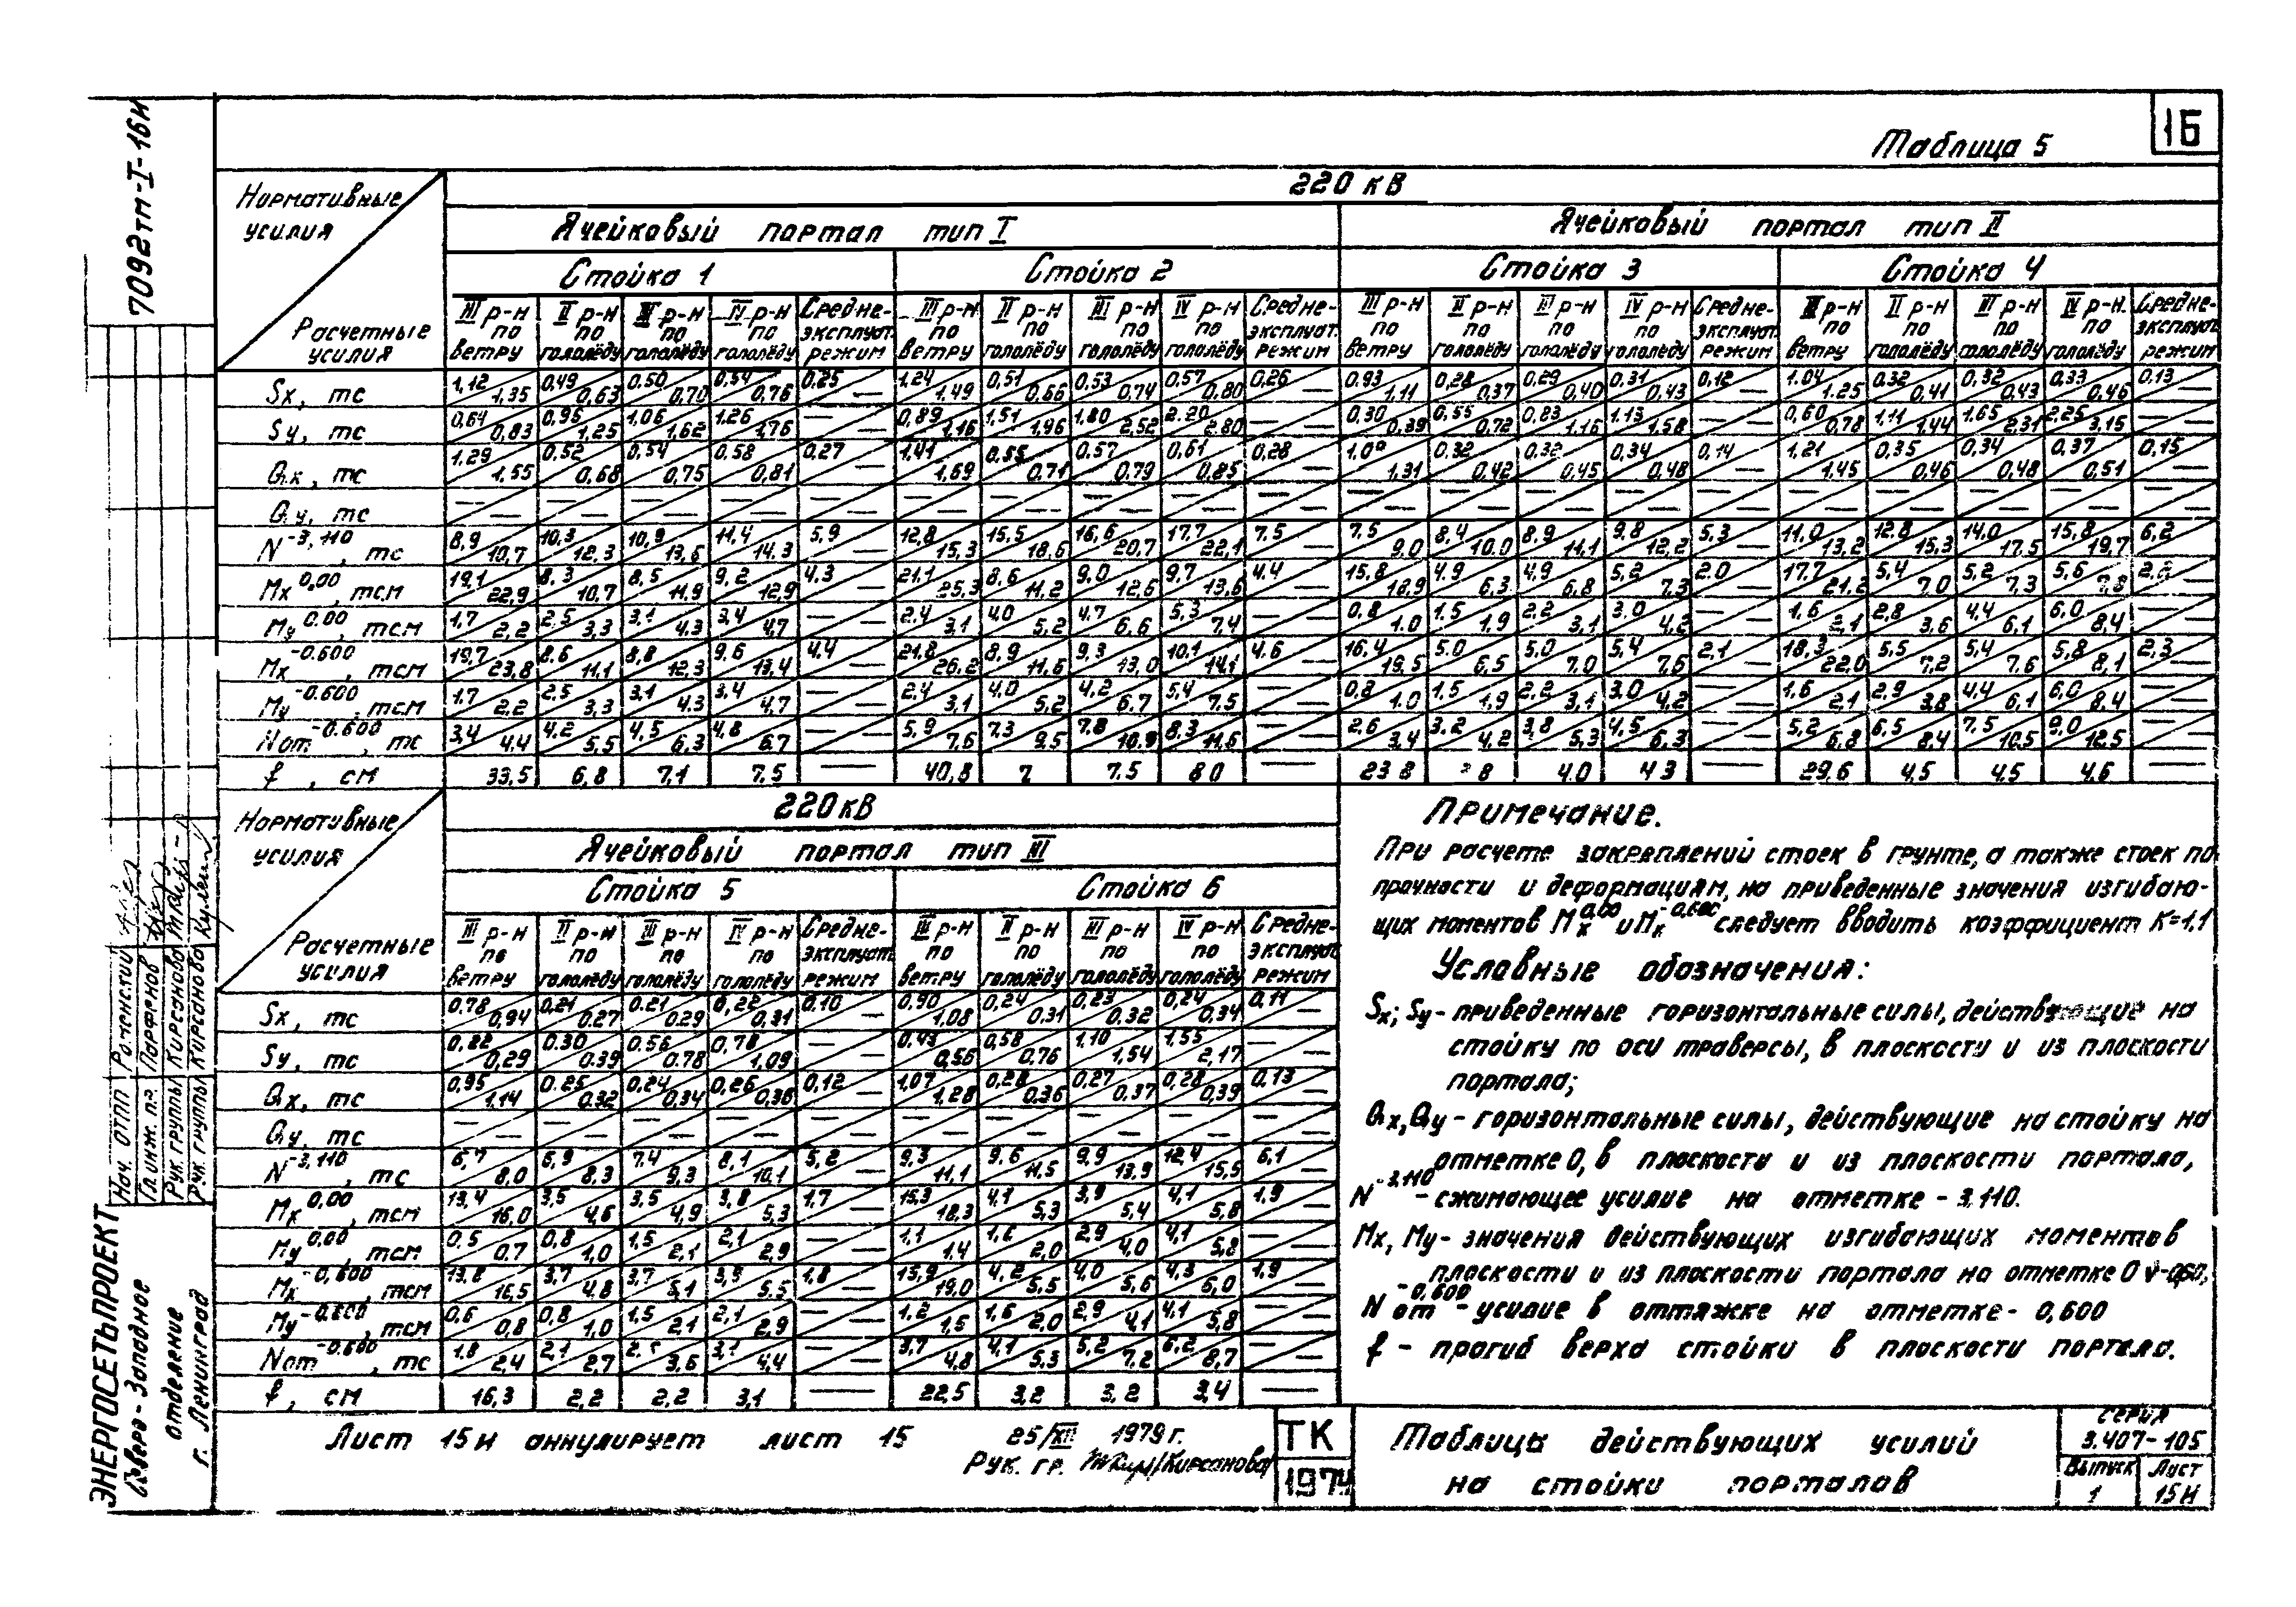 16
Таблица 5
7092тм-I-16И
Нормативные усилия
Расчетные усилия
220 кВ
Ячейковый портал тип I
Ячейковый портал тип II
Стойка 1
Стойка 2
Стойка 3
Стойка 4
III р-н по ветру
II р-н по гололёду
III р-н по гололёду
IV р-н по гололёду
Средне-эксплуат. режим
III р-н по ветру
II р-н по гололёду
III р-н по гололёду
IV р-н по гололёду
Средне-эксплуат. режим
III р-н по ветру
II р-н по гололёду
III р-н по гололёду
IV р-н по гололёду
Средне-эксплуат. режим
III р-н по ветру
II р-н по гололёду
III р-н по гололёду
IV р-н по гололёду
Средне-эксплуат. режим
Sx, тс 1,12 1,35 0,49 0,63 0,50 0,70 0,54 0,76 0,25 — 1,24 1,49 0,51 0,66 0,53 0,74 0,57 0,80 0,26 — 0,93 1,11 0,28 0,37 0,29 0,40 0,31 0,43 0,12 — 1,04 1,25 0,32 0,41 0,32 0,43 0,33 0,46 0,13 —
Sy, тс 0,64 0,83 0,95 1,25 1,06 1,62 1,26 1,76 — — 0,89 1,16 1,51 1,96 1,80 2,52 2,20 2,80 — — 0,30 0,39 0,55 0,72 0,83 1,16 1,13 1,58 — — 0,60 0,78 1,11 1,44 1,65 2,31 2,25 3,15 — —
Qx, тс 1,29 1,55 0,52 0,68 0,54 0,75 0,58 0,81 0,27 — 1,41 1,69 0,55 0,71 0,57 0,79 0,61 0,85 0,28 — 1,31 0,32 0,42 0,32 0,45 0,34 0,48 0,14 — 1,21 1,45 0,35 0,46 0,34 0,48 0,37 0,51 0,15 —
Qy, тс — — — — — — — — — — — — — — — — — — — — — — — — — — — — — — — — — — — — — — — —
N-3,110, тс 8,9 10,7 10,3 12,3 10,9 13,6 11,4 14,3 5,9 — 12,8 15,3 15,5 18,6 16,6 20,7 17,7 22,1 7,5 — 7,5 9,0 8,4 10,0 8,9 11,1 9,8 12,2 5,3 — 11,0 13,2 12,8 15,3 14,0 17,5 15,8 19,7 6,2 —
Mx0,00, тсм 19,1 22,9 8,3 10,7 8,5 11,9 9,2 12,9 4,3 — 21,1 25,3 8,6 11,2 9,0 12,6 9,7 13,6 4,4 — 15,8 18,9 4,9 6,3 4,9 6,8 5,2 7,3 2,0 — 17,7 21,2 5,4 7,0 5,2 7,3 5,6 7,8 2,2 —
My0,00, тсм 1,7 2,2 2,5 3,3 3,1 4,3 3,4 4,7 — — 2,4 3,1 4,0 5,2 4,7 6,6 5,3 7,4 — — 0,8 1,0 1,5 1,9 2,2 3,1 3,0 4,2 — — 1,6 2,1 2,8 3,6 4,4 6,1 6,0 8,4 — —
Mx-0.600, тсм 19,7 23,8 8,6 11,1 8,8 12,3 9,6 13,4 4,4 — 21,8 26,2 8,9 11,6 9,3 13,0 10,1 14,1 4,6 — 16,4 19,5 5,0 6,5 5,0 7,0 5,4 7,6 2,1 — 18,3 22,0 5,5 7,2 5,4 7,6 5,8 8,1 2,3 —
My-0.600, тсм 1,7 2,2 2,5 3,3 3,1 4,3 3,4 4,7 — — 2,4 3,1 4,0 5,2 4,2 6,7 5,4 7,5 — — 0,8 1,0 1,5 1,9 2,2 3,1 3,0 4,2 — — 1,6 2,1 2,9 3,8 4,4 6,1 6,0 8,4 — —
Nот-0.600, тс 3,4 4,4 4,2 5,5 4,5 6,3 4,8 6,7 — — 5,9 7,6 7,3 9,5 7,8 10,9 8,3 11,6 — — 2,6 3,4 3,2 4,2 3,8 5,3 4,5 6,3 — — 5,2 6,8 6,5 8,4 7,5 10,5 9,0 12,5 — —
f, см 33,5 6,8 7,1 7,5 — 40,8 7 7,5 80 — 23 8 8 4,0 4 3 — 29,6 4,5 4,5 4,6 —
Нормативные усилия
Расчетные усилия
220кВ
Ячейковый портал тип III
Стойка 5
Стойка 6
III р-н по ветру
II р-н по гололёду
III р-н по гололёду
IV р-н по гололёду
Средне-эксплуат. режим
III р-н по ветру
II р-н по гололёду
III р-н по гололёду
IV р-н по гололёду
Средне-эксплуат. режим
Sx, тс 0,78 0,94 0,21 0,27 0,21 0,29 0,22 0,31 0,10 — 0,90 1,08 0,24 0,31 0,23 0,32 0,24 0,34 0,11 —
Sy, тс 0,22 0,29 0.30 0.39 0.56 0.78 0,78 1,09 — — 0,43 0,56 0,58 0,76 1,10 1,54 1,55 2,17 — —
Qx, тс 0,95 1,14 0.25 0.32 0.24 0,34 0,26 0,36 0,12 — 1,07 1,28 0,28 0,36 0,27 0,37 0,28 0,39 0,13 —
Qy, тс — — — — — — — — — — — — — — — — — — — —
N-3,110, тс 6,7 8,0 6,9 8,3 7,4 9,3 8,1 10,1 5,2 — 9,3 11,1 9,6 11,5 9,9 13,9 12,4 15,5 6,1 —
Mx0,00, тсм 13,4 16,0 3,5 4,6 3,5 4,9 3,8 5,3 1,7 — 15,3 18,3 4,1 5,3 3,9 5,4 4,1 5,8 1,9 —
My0,00, тсм 0,5 0,7 0,8 1,0 1,5 2,1 2,1 2,9 — — 1,1 1,4 1,6 2,0 2,9 4,0 4,1 5,8 — —
Mx-0,600, тсм 13,8 16,5 3,7 4,8 3,7 5,1 3,9 5,5 1,8 — 15,9 19,0 4,2 5,5 4,0 5,6 4,3 6,0 1,9 —
My-0.600, тсм 0,6 0,8 0,8 1,0 1,5 2,1 2,1 2,9 — — 1,2 1,5 1,6 2,0 2,9 4,1 4,1 5,8 — —
Nот-0.600, тс 1,8 2,4 2,1 2,7 3,6 4,4 — — 3,7 4,8 4,1 5,3 5,2 7,2 6,2 8,7 — —
f, см 16,3 2,2 2,2 3,1 — 22,5 3,2 3,2 3,4 —
Примечание.
При расчете закреплений стоек в грунте, а также стоек по
прочности и деформациям, на приведенные значения изгибаю-
щих моментов Mx0,00 и Mx-0,600 следует вводить коэффициент К=1,1
Условные обозначения:
Sx; Sy - приведенные горизонтальные силы, действующие на
стойку по оси траверсы, в плоскости и из плоскости
портала;
Qx, Qy - горизонтальные силы, действующие на стойку на
отметке 0, в плоскости и из плоскости портала,
N-3.110 - сжимающее усилие на отметке - 3,110.
Mx, My - значения действующих изгибающих моментов
плоскости и из плоскости портала на отметке 0
Nот-0,600 - усилие в оттяжке на отметке - 0,600
f - прогиб верха стойки в плоскости портала.
Лист 15И аннулирует лист 15
25/XII 1979г.
Рук. гр. /Кирсанова/
ТК
1974
Таблицы действующих усилий
на стойки порталов
серия
3.407-105
Выпуск
1
Лист
15И
ЭНЕРГОСЕТЬПРОЕКТ
Северо-Западное
отделение
г. Ленинград
Нач. ОТПП Роменский
Гл. инж. пр. Парфенов
Рук. группы Кирсанова
Рук. группы Кирсанова